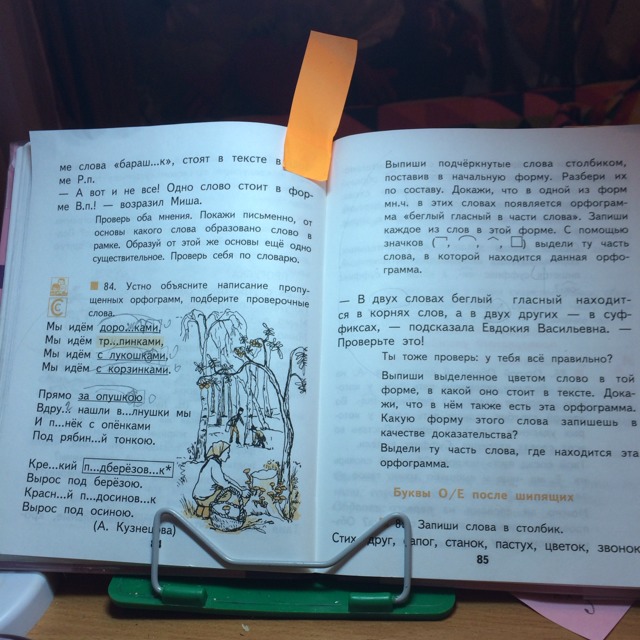 ме слова «бараш...к», стоят в тексте в
ме Р.п.
— А вот и не все! Одно слово стоит в фор-
ме В.п.! — возразил Миша.
Проверь оба мнения. Покажи письменно, от
основы какого слова образовано слово в
рамке. Образуй от этой же основы ещё одно
существительное. Проверь себя по словарю.
84. Устно объясните написание пропу-
щенных орфограмм, подберите проверочные
слова.
Мы идём доро...ками,
Мы идём тр...пинками,
Мы идём с лукошками,
Мы идём с корзинками.
Прямо за опушкою
Вдру... нашли в...лнушки мы
И п...нёк с опёнками
Под рябин...й тонкою.
Кре...кий п...дберёзов...к*
Вырос под берёзою.
Красн...й п...досинов...к
Вырос под осиною.
(А. Кузнецова)
Выпиши подчёркнутые слова столбиком,
поставив в начальную форму. Разбери их
по составу. Докажи, что в одной из форм
мн.ч. в этих словах появляется орфограм-
ма «беглый гласный в части слова». Запиши
каждое из слов в этой форме. С помощью
значков выдели ту часть
слова, в которой находится данная орфо-
грамма.
— В двух словах беглый гласный находит-
ся в корнях слов, а в двух других — в суф-
фиксах, — подсказала Евдокия Васильевна. —
Проверьте это!
Ты тоже проверь: у тебя всё правильно?
Выпиши выделенное цветом слово в той
форме, в какой оно стоит в тексте. Дока-
жи, что в нём также есть эта орфограмма.
Какую форму этого слова запишешь в
качестве доказательства?
Выдели ту часть, где находится эта
орфограмма.
Буквы О/Е после шипящих
Запиши слова в столбик.
Стих, друг, сапог, станок, пастух, цветок, звонок
85